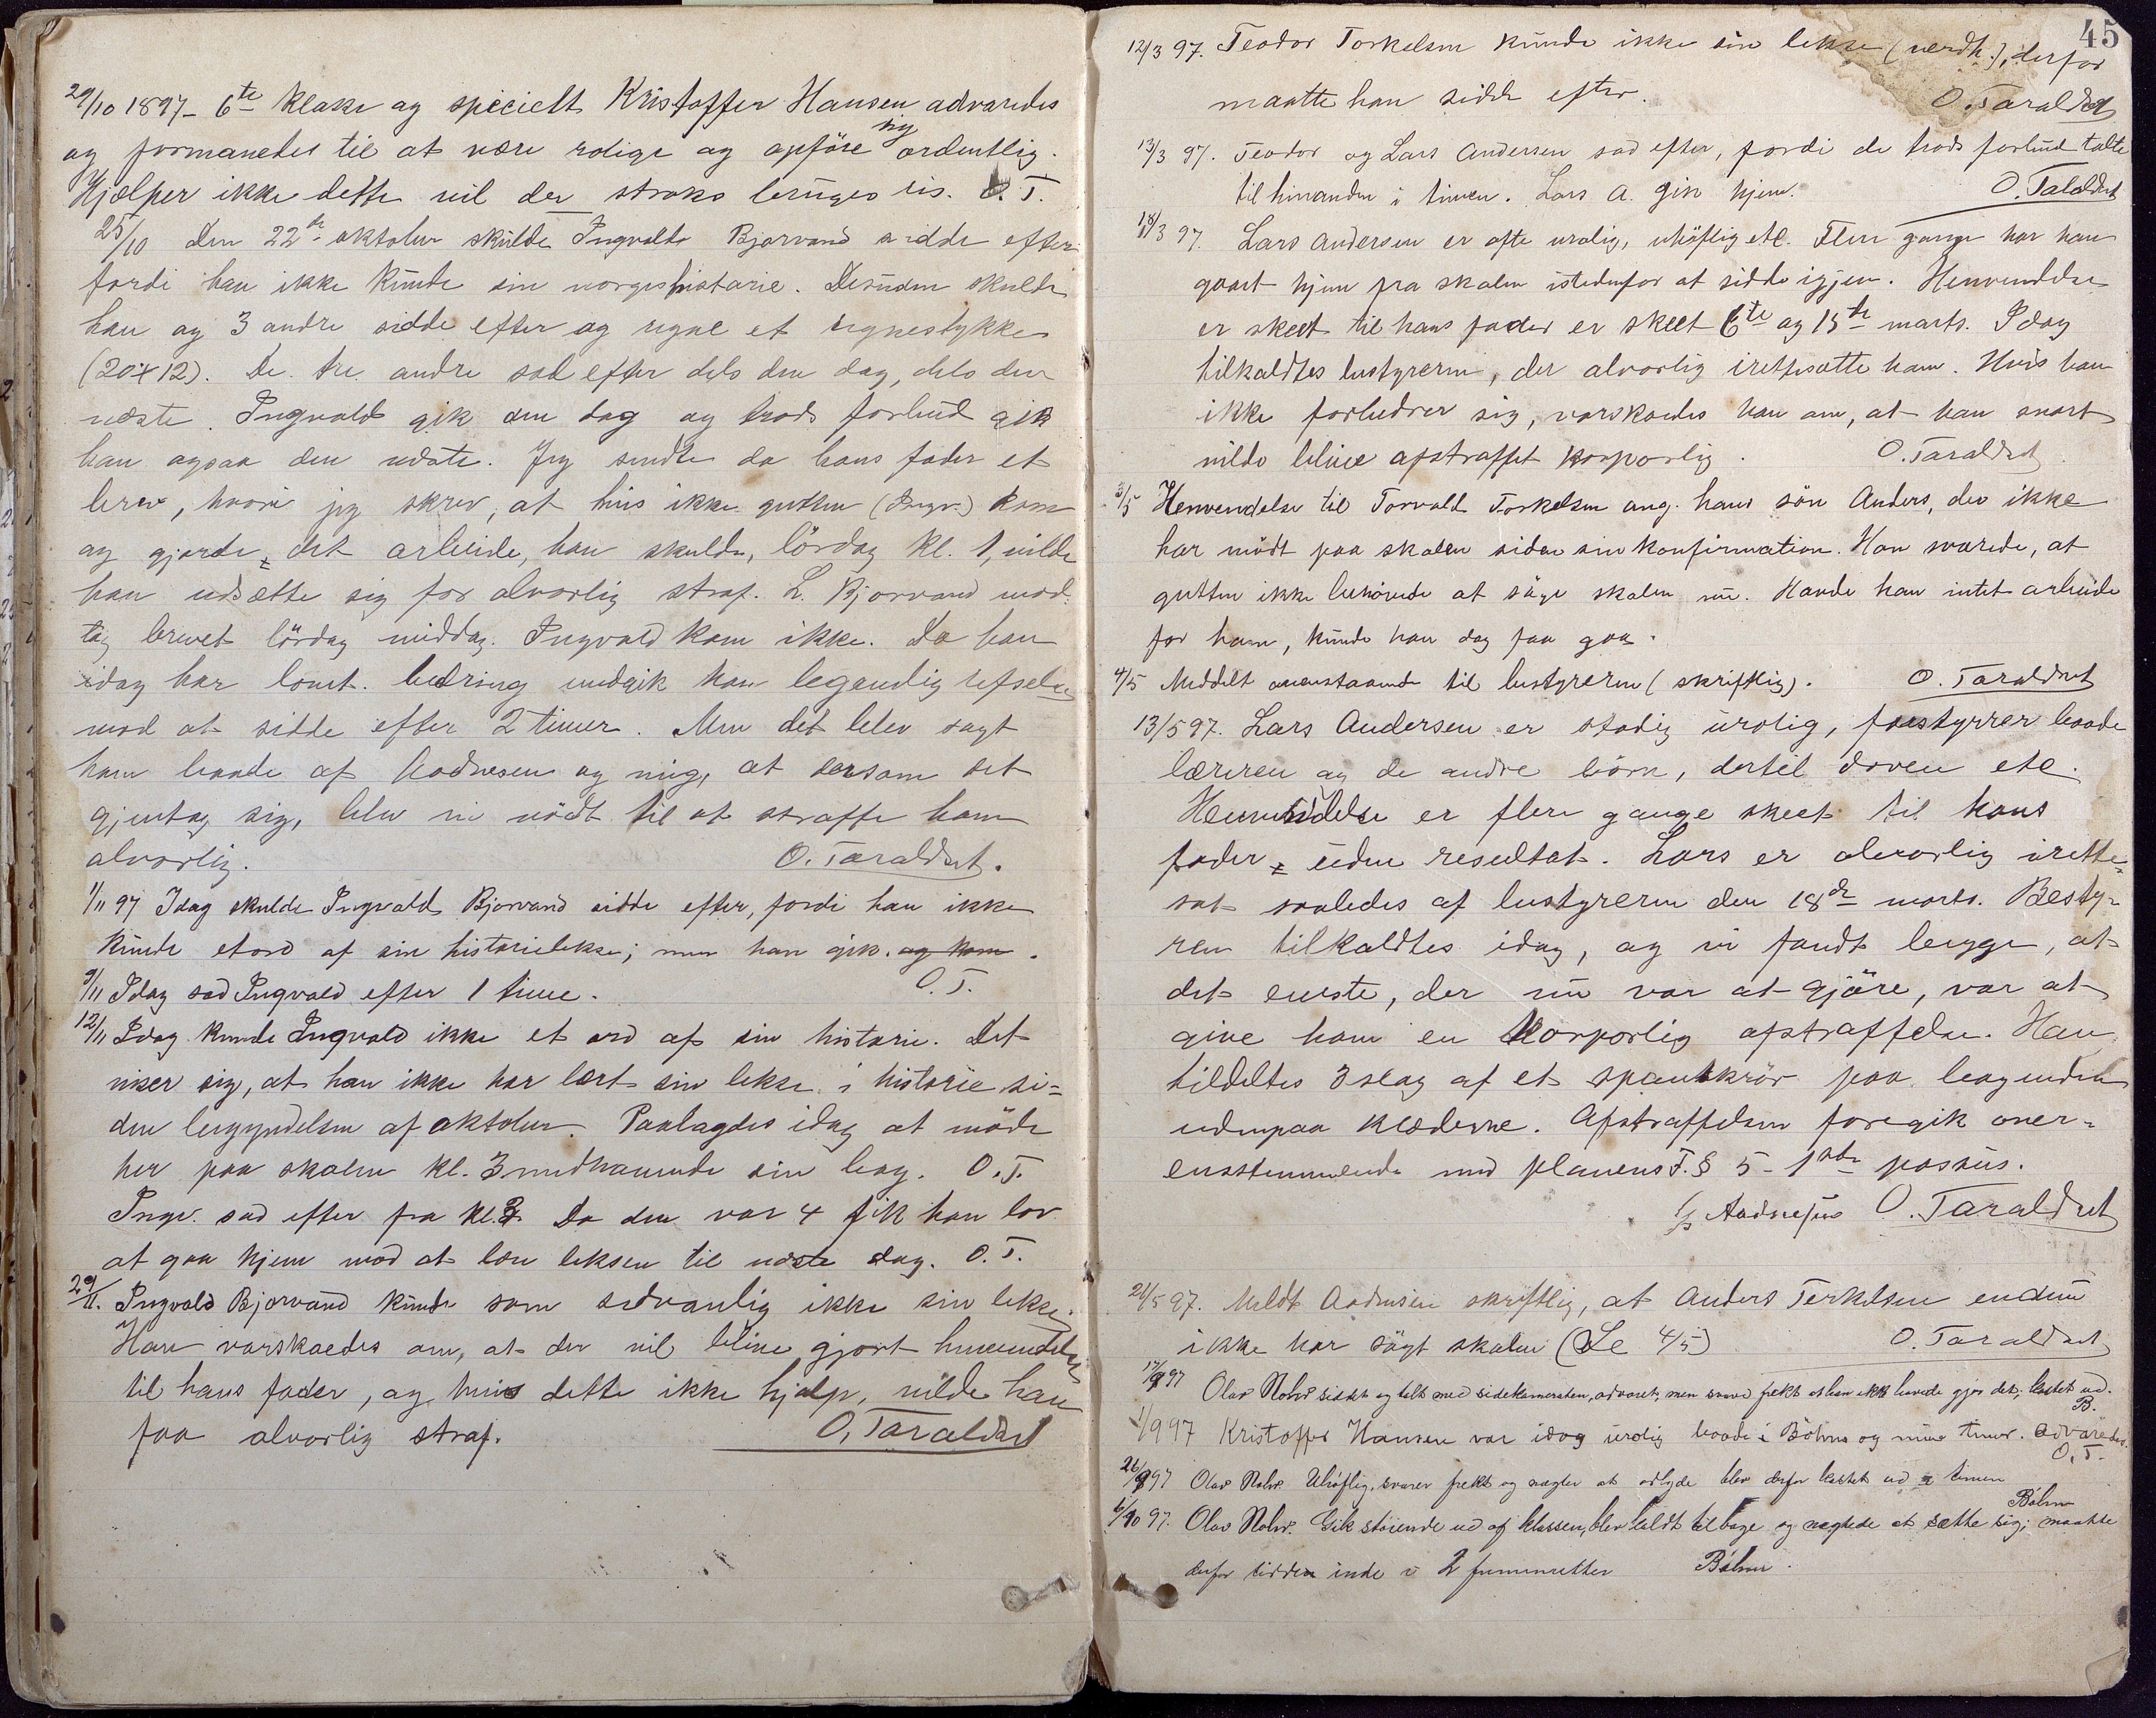 29/10 1897 - 6te klasse og specielt Kristoffer Hansen advaredes
og formanedes til at være rolige og opföre sig ordentlig.
Hjælper ikke dette vil der straks bruges ris. O.T.
25/10 Den 22de oktober skulde Ingvald Bjorvand sidde efter
fordi han ikke kunde sin norgeshistorie. Desuden skulde
han og 3 andre sidde efter og regne et regnestykke
(20x12). De tre andre sad efter dels den dag, dels den
næste. Ingvald gik den dag og trods forbud gik
han ogsaa den næste. Jeg sendte da hans fader et
brev, hvori jeg skrev, at hvis ikke gutten (Ingv.) kom
og gjorde det arbeide, han skulde, lördag kl. 1, vilde
han udsætte sig for alvorlig straf. L. Bjorvand mod-
tog brevet lördag middag. Ingvald kom ikke. Da han
idag har lovet bedring undgik han legemlig refselse
mod at sidde efter 2 timer. Men det blev sagt
ham baade af Aadnesen og mig, at dersom det
gjentog sig, blev vi nödt til at straffe ham
alvorlig. O. Taraldset.
1/11 97 Idag skulde Ingvald Bjorvand sidde efter, fordi han ikke
kunde et ord af sin historielekse; men han gik. og kom.
9/11 Idag sad Ingvald efter 1 time. O.T.
12/11 Idag kunde Ingvald ikke et ord af sin historie. Det
viser sig, at han ikke har lært sin lekse i historie si=
den begyndelsen af oktober. Paalagdes idag at möde
her paa skolen kl. 3 medhavende sin bog. O.T.
Ingv. sad efter fra kl. 3. Da den var 4 fik han lov
at gaa hjem mod at lære leksen til næste dag. O.T.
29/11. Ingvald Bjorvand kunde som sedvanlig ikke sin lekse.
Han varskoedes om, at der vil blive gjort henvendelse
til hans fader, og hvis dette ikke hjalp, vilde han
faa alvorlig straf. O. Taraldset
45
12/3 97. Teodor Torkelsen kunde ikke sin lekse (verdh.), derfor
maatte han sidde efter. O. Taraldset
13/3 97. Teodor og Lars Andersen sad efter, fordi de trods forbud talte
til hinanden i timen. Lars A. gik hjem. O. Taraldset
18/3 97. Lars Andersen er ofte urolig, uhöflig etc. Flere gange har han
gaaet hjem fra skolen istedenfor at sidde igjen. Henvendelse
er skeet til hans fader er skeet 6te og 15de marts. Idag
tilkaldtes bestyreren, der alvorlig irettesatte ham. Hvis han
ikke forbedrer sig, varskoedes han om, at han snart
vilde blive afstraffet korporlig. O. Taraldset
3/5 Henvendelse til Torvald Torkelsen ang. hans sön Anders, der ikke
har mödt paa skolen siden sin konfirmation. Han svarede, at
gutten ikke behövede at söge skolen nu. Havde han intet arbeide
for ham, kunde han dog faa gaa.
4/5 Meddelt ovenstaaende til bestyreren (skriftlig). O. Taraldset
13/5 97. Lars Andersen er stadig urolig, forstyrrer baade
læreren og de andre börn, dertil doven etc.
Henvendelse er flere gange skeet til hans
fader uden resultat. Lars er alvorlig irette=
sat saaledes af bestyreren den 18de marts. Besty=
ren tilkaldtes idag, og vi fandt begge, at
det eneste, der nu var at gjöre, var at
give ham en korporlig afstraffelse. Han
tildeltes 3 slag af et spanskrör paa bagenden
udenpaa klæderne. Afstraffelsen foregik over=
ensstemmende med planens F. § 5 - 1ste passus.
Aadnesen O. Taraldset
21/5 97. Meldt Aadnesen skriftlig, at Anders Terkelsen endnu
ikke har sögt skolen (Se 4/5) O. Taraldset
17/9 97 Olav Nohr siddet og talt med sidekameraten, advaret, men svared frekt at han ikke havde gjor det; kastet ud.
B.
1/9 97 Kristoffer Hansen var idag urolig baade i Böhns og mine timer. Advaredes.
O.T.
26/9 97 Olav Nohr. Uhöflig, svarer frekt og nægter at adlyde blev derfor kastet ud af timen
Böhn
6/10 97. Olav Nohr. Gik stöiende ud af klassen, blev kaldt tilbage og nægtede at sætte sig; maatte
derfor sidde inde i 2 friminutter Böhn.